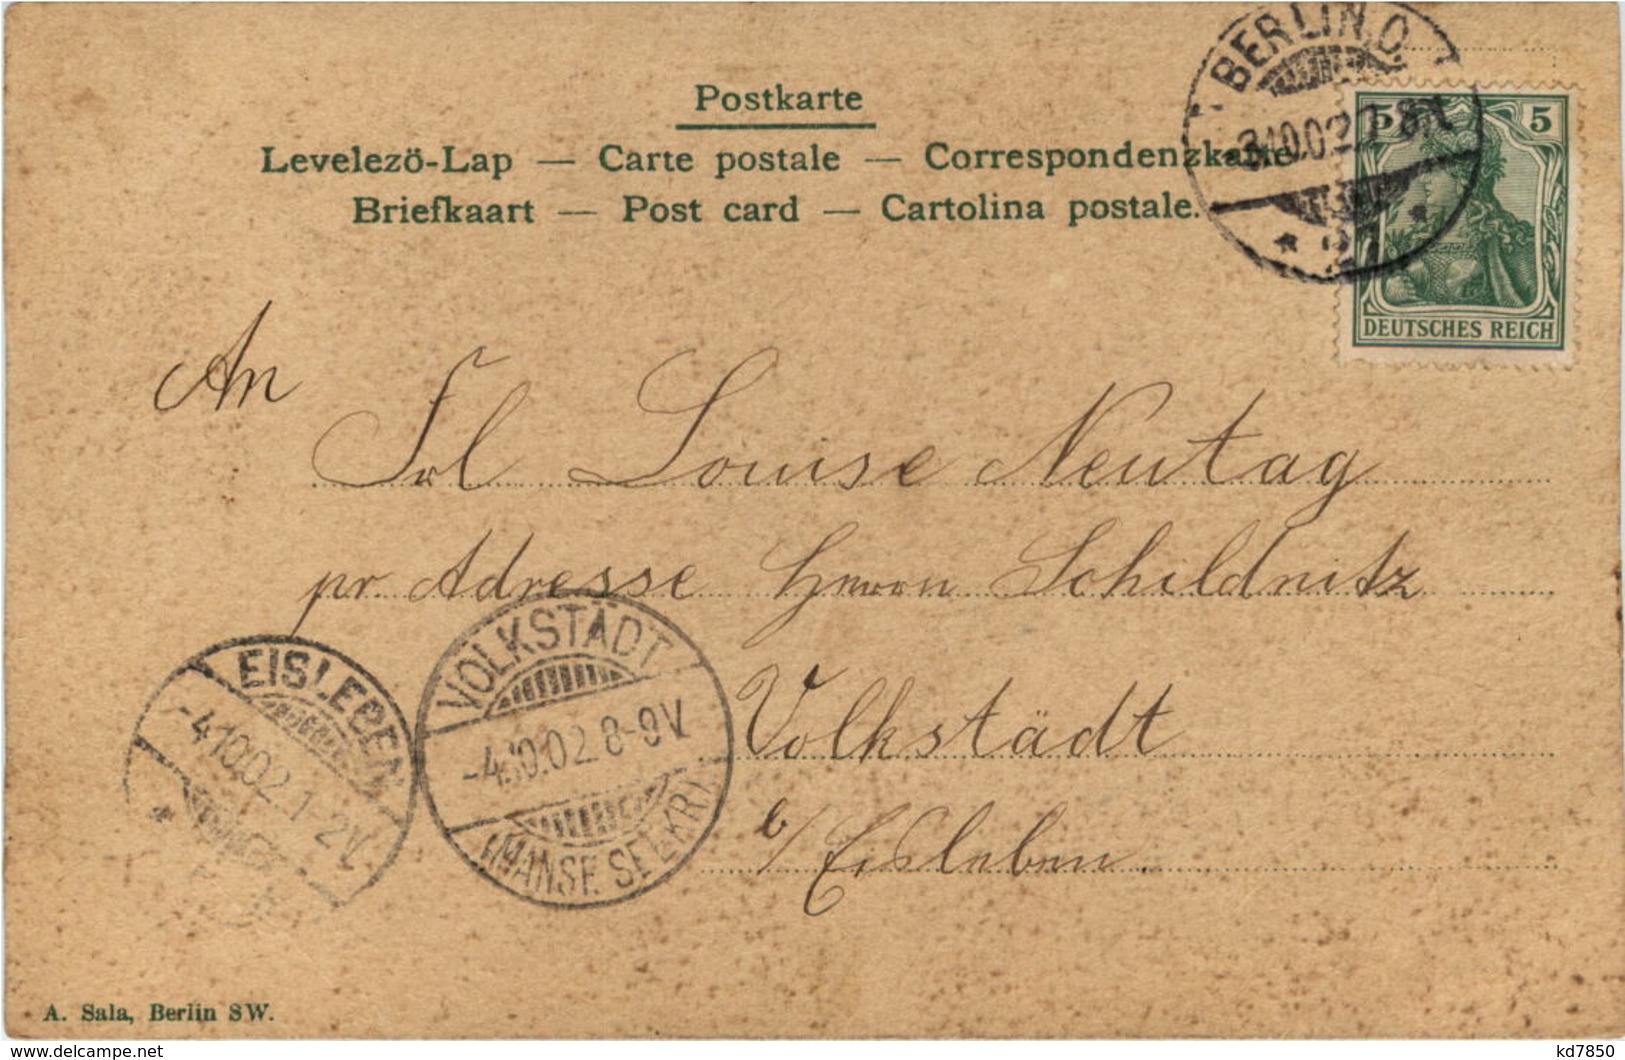 Postkarte
Levelezö-Lap — Carte postale — Correspondenzkarte
Briefkaart — Post card — Cartolina postale.
BERLIN.O.
3.10.02.7-8N.
* 27 *
5 5
DEUTSCHES REICH
An
Frl Louise Neutag
pr. Adresse Herrn Schildnitz
Volkstädt
b/ Eisleben.
EISLEBEN
-4.10.02.1-2V.
VOLKSTÄDT
-4.10.02.8-9V.
(MANSF. SEEKR.)
A. Sala, Berlin SW.
www.delcampe.net
kd7850